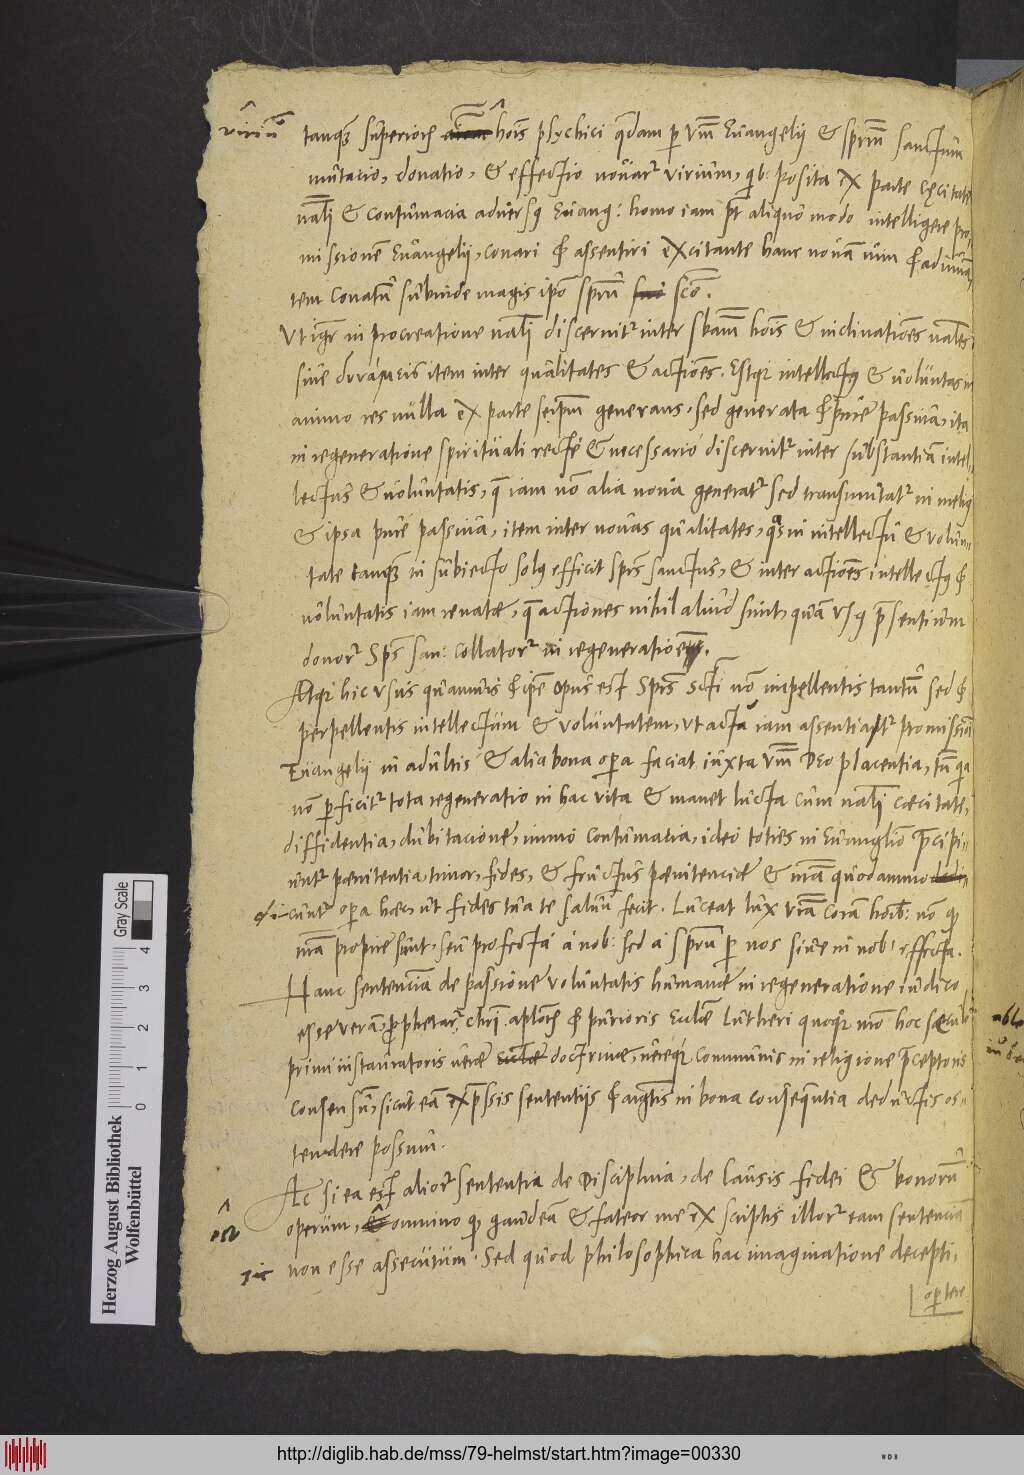 virium
tanquam superioris hois psychici quedam per vbum Euangelij & spiritum sanctum
mutatio, donatio, & effectio nouar virium, quib: posita ex parte cęcitate
nali & contumacia aduersus Euang: homo iam pt aliquo modo intelligere pro,
missionem Euangelij, conari & assentiri excitante hanc nouam uim & adiuuan
tem conatum subinde magis ipso spiritu sco.
Vt igr in procreatione nali discernitr inter sbam hois & inclinationes nales
siue δυνάμεις item inter qualitates & actiones. Estque intellectus & uoluntas in
animo res nulla ex parte seipsam generans, sed generata & pure passiua, ita
in regeneratione spirituali recte & necessario discernitr inter substantiam intel,
lectus & uoluntatis, que iam non alia noua generatr sed transmutatr in melius
& ipsa pure passiua, item inter nouas qualitates, quas in intellectu & volun
tate tanquam in subiecto solus efficit spiritus sanctus, & inter actiones intellectus &
uoluntatis iam renatae, que actiones nihil aliud sunt, quam usus presentium
donor Sps san: collator in regeneratione.
Atqui hic usus quamuis & ipse opus est Spiritus scti non impellentis tantum sed &
perpellentis intellectum & voluntatem, ut acta iam assentiatr promissioni
Euangelij in adultis & alia bona opera faciat iuxta vbum Deo placentia, tamen quia
non perficitr tota regeneratio in hac vita & manet lucta cum nali coecitate,
diffidentia, dubitatione, immo contumacia, ideo toties in Euanglio precipi,
untr pœnitentia, timor, fides, & fructus pœnitenciae & nra quodammo
dicuntr opera haec, ut fides tua te saluum fecit. Luceat lux vra coram hoib: non quod
nra proprie sunt, seu profecta a nob: sed a spiritu per nos siue in nob: effecta.
Hanc sentenciam de passione voluntatis humanae in regeneratione iudico
esse veram, prophetar, chri, aplor & purioris Ecclae Lutheri quoque nro hoc sęculo
primi instauratoris uerae doctrinae, uereque communis in religione preceptoris
consensum, sicut eam expressis sententijs & argtis in bona consequentia deductis os,
tendere possum.
Ac si ea est alior sententia de Disciplina, de causis fidei & bonorum
operum, omnino quod gaudeam & fateor me ex scriptis illor eam sentenciam
non esse assecutum. Sed quod philosophica hac imaginatione decepti,
opertere
Gray Scale
0 1 2 3 4
Herzog August Bibliothek
Wolfenbüttel
http://diglib.hab.de/mss/79-helmst/start.htm?image=00330
WDB